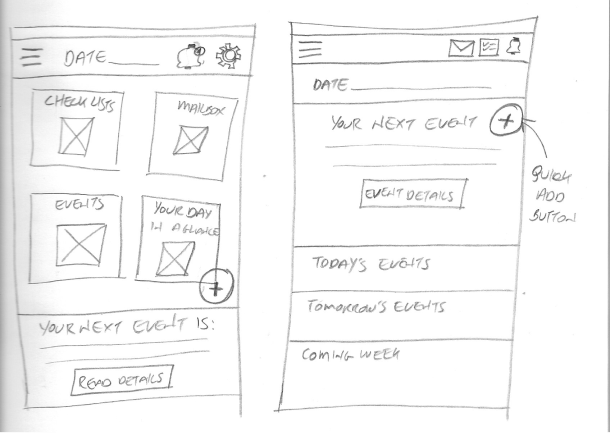 DATE
CHECKLISTS
MAILBOX
EVENTS
YOUR DAY
IN A GLANCE
+
YOUR NEXT EVENT IS:
READ DETAILS
DATE
YOUR NEXT EVENT
+
EVENT DETAILS
QUICK
ADD
BUTTON
TODAY'S EVENTS
TOMORROW'S EVENTS
COMING WEEK